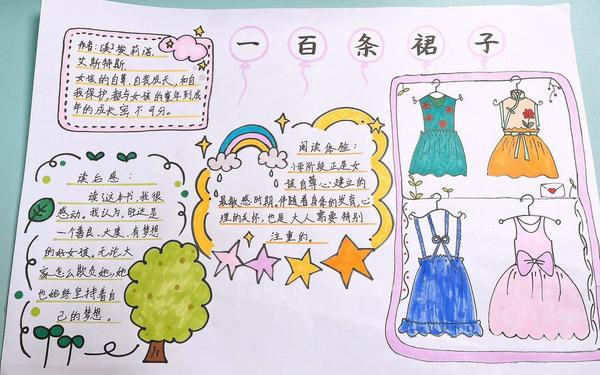 一百条裙子
作者:[美]埃莉诺.
艾斯特斯
女孩的自尊、自我成长,和自
我保护,都与女孩的童年到成
年的成长密不可分。
读后感:
读这本书,我很
感动。我认为,旺达是
一个善良、大度、有梦想
的好女孩。无论大
家怎么欺负她,她
也始终坚持着自
己的梦想。
阅读体验:
小学阶段正是女
孩自尊心建立的
最敏感时期,伴随着身体的发育,心
理的关怀,也是大人需要特别
注重的。